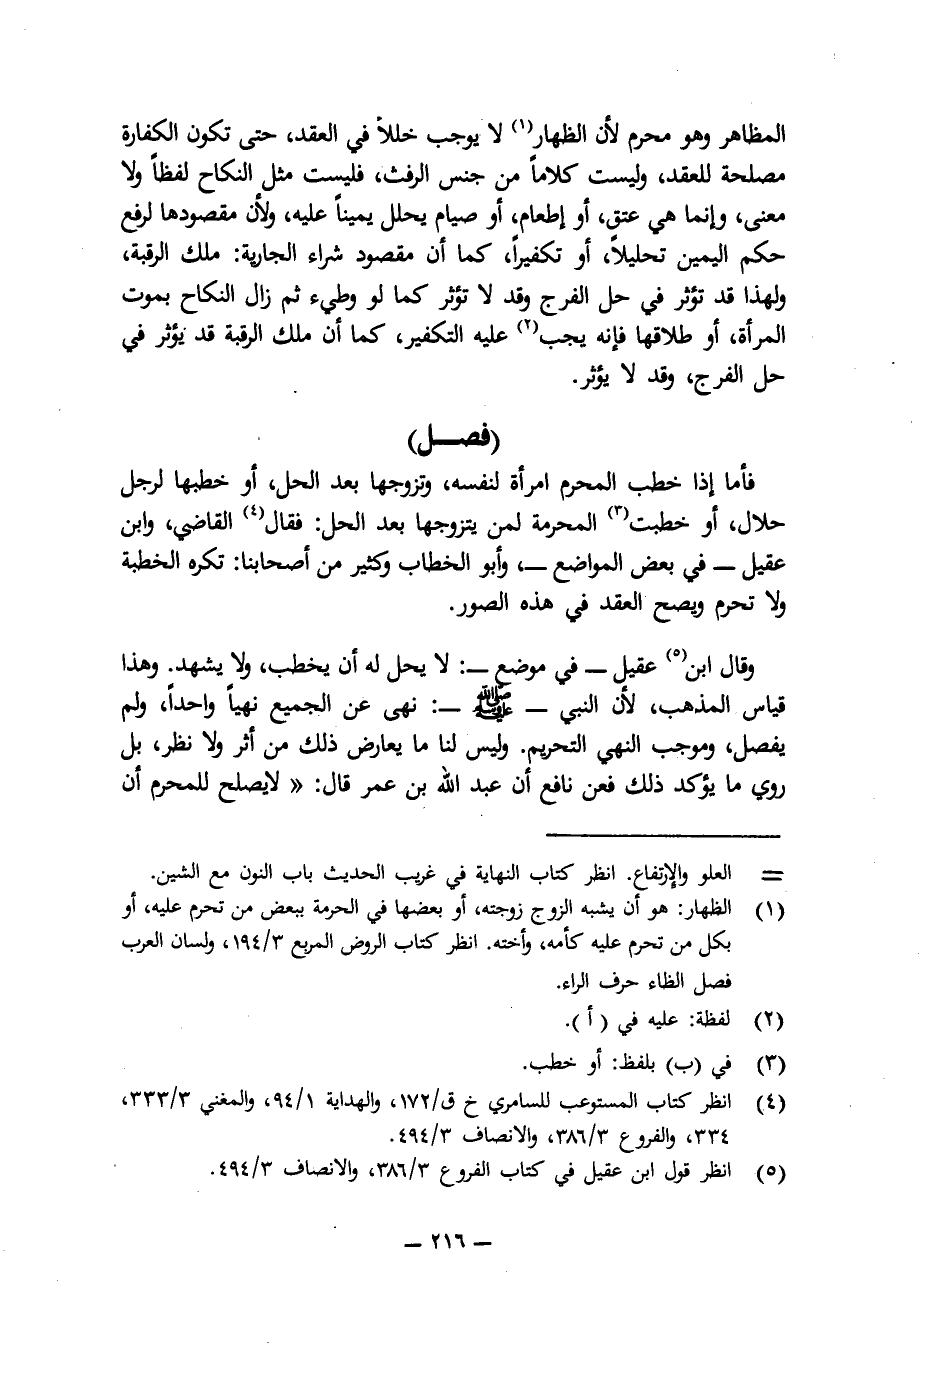 المظاهر وهو محرم لأن الظهار(١) لا يوجب خللاً في العقد، حتى تكون الكفارة
مصلحة للعقد، وليست كلاماً من جنس الرفث، فليست مثل النكاح لفظاً ولا
معنى، وإنما هي عتق، أو إطعام، أو صيام يحلل يميناً عليه، ولأن مقصودها لرفع
حكم اليمين تحليلاً، أو تكفيراً، كما أن مقصود شراء الجارية: ملك الرقبة،
ولهذا قد تؤثر في حل الفرج وقد لا تؤثر كما لو وطيء ثم زال النكاح بموت
المرأة، أو طلاقها فإنه يجب(٢) عليه التكفير، كما أن ملك الرقبة قد يؤثر في
حل الفرج، وقد لا يؤثر.
(فصـــل)
فأما إذا خطب المحرم امرأة لنفسه، وتزوجها بعد الحل، أو خطبها لرجل
حلال، أو خطبت(٣) المحرمة لمن يتزوجها بعد الحل: فقال(٤) القاضي، وابن
عقيل — في بعض المواضع —، وأبو الخطاب وكثير من أصحابنا: تكره الخطبة
ولا تحرم ويصح العقد في هذه الصور.
وقال ابن(٥) عقيل — في موضع —: لا يحل له أن يخطب، ولا يشهد. وهذا
قياس المذهب، لأن النبي — ﷺ —: نهى عن الجميع نهياً واحداً، ولم
يفصل، وموجب النهي التحريم. وليس لنا ما يعارض ذلك من أثر ولا نظر، بل
روي ما يؤكد ذلك فعن نافع أن عبد الله بن عمر قال: « لايصلح للمحرم أن
= العلو والإرتفاع. انظر كتاب النهاية في غريب الحديث باب النون مع الشين.
(١) الظهار: هو أن يشبه الزوج زوجته، أو بعضها في الحرمة ببعض من تحرم عليه، أو
بكل من تحرم عليه كأمه، وأخته. انظر كتاب الروض المربع ١٩٤/٣، ولسان العرب
فصل الظاء حرف الراء.
(٢) لفظة: عليه في ( أ ).
(٣) في (ب) بلفظ: أو خطب.
(٤) انظر كتاب المستوعب للسامري خ ق/١٧٢، والهداية ٩٤/١، والمغني ٣٣٣/٣،
٣٣٤، والفروع ٣٨٦/٣، والانصاف ٤٩٤/٣.
(٥) انظر قول ابن عقيل في كتاب الفروع ٣٨٦/٣، والانصاف ٤٩٤/٣.
— ٢١٦ —